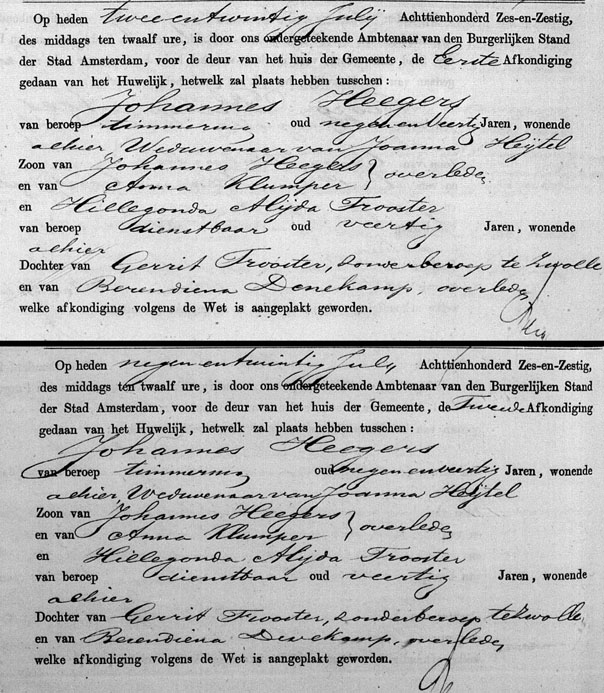 Op heden twee en twintig July Achttienhonderd Zes-en-Zestig,
des middags ten twaalf ure, is door ons ondergeteekende Ambtenaar van den Burgerlijken Stand
der Stad Amsterdam, voor de deur van het huis der Gemeente, de Eerste Afkondiging
gedaan van het Huwelijk, hetwelk zal plaats hebben tusschen:
Johannes Heegers
van beroep timmerman oud negen en veertig Jaren, wonende
alhier, Weduwenaar van Joanna Heijtel
Zoon van Johannes Heegers
en van Anna Klumper } overleden
en Hillegonda Alijda Trooster
van beroep dienstbaar oud veertig Jaren, wonende
alhier
Dochter van Gerrit Trooster, zonder beroep te Zwolle
en van Berendiena Denekamp, overleden
welke afkondiging volgens de Wet is aangeplakt geworden.
Op heden negen en twintig July Achttienhonderd Zes-en-Zestig,
des middags ten twaalf ure, is door ons ondergeteekende Ambtenaar van den Burgerlijken Stand
der Stad Amsterdam, voor de deur van het huis der Gemeente, de Tweede Afkondiging
gedaan van het Huwelijk, hetwelk zal plaats hebben tusschen:
Johannes Heegers
van beroep timmerman oud negen en veertig Jaren, wonende
alhier, Weduwenaar van Joanna Heijtel
Zoon van Johannes Heegers
en van Anna Klumper } overleden
en Hillegonda Alijda Trooster
van beroep dienstbaar oud veertig Jaren, wonende
alhier
Dochter van Gerrit Trooster, zonder beroep te Zwolle
en van Berendiena Denekamp, overleden
welke afkondiging volgens de Wet is aangeplakt geworden.